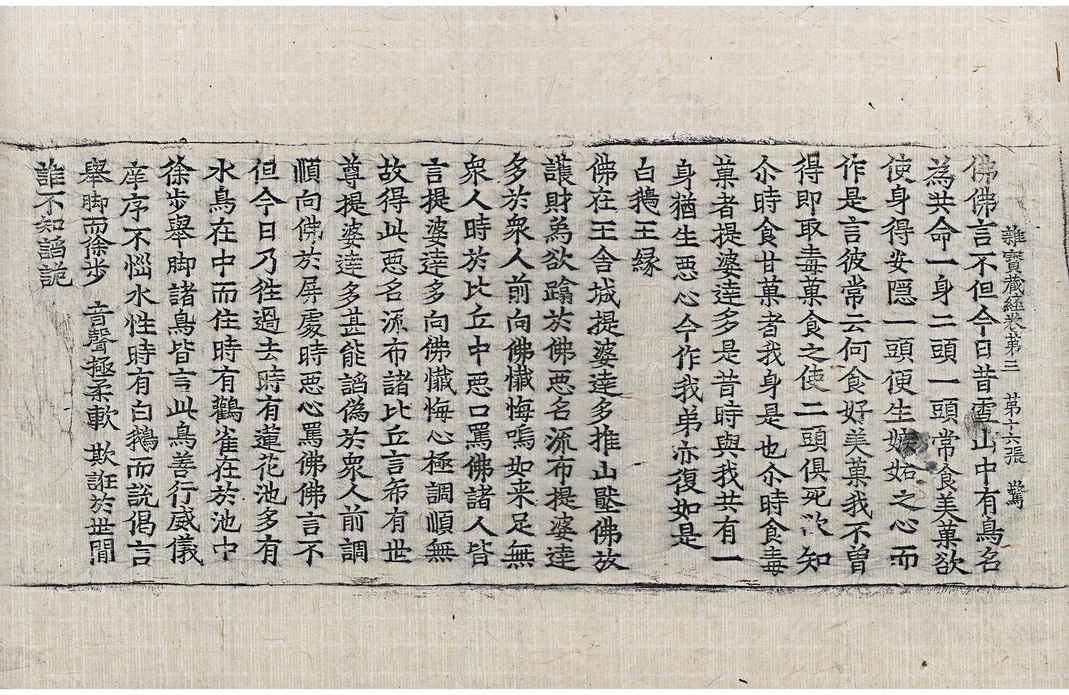 雜寶藏經卷第三　第十六張　驚
佛佛言不但今日昔雪山中有鳥名
為共命一身二頭一頭常食美菓欲
使身得安隠一頭便生嫉妬之心而
作是言彼常云何食好美菓我不曾
得即取毒菓食之使二頭俱死欲知
尒時食甘菓者我身是也尒時食毒
菓者提婆逹多是昔時與我共有一
身猶生悪心今作我弟亦復如是
白鵝王緣
佛在王舍城提婆逹多推山壓佛故
護財為欲蹋於佛悪名流布提婆逹
多於衆人前向佛懺悔嗚如来足無
衆人時於比丘中悪口罵佛諸人皆
言提婆逹多向佛懺悔心極調順無
故得此悪名流布諸比丘言希有世
尊提婆逹多甚能諂偽於衆人前調
順向佛於屏處時悪心罵佛佛言不
但今日乃徃過去時有蓮花池多有
水鳥在中而住時有鸛雀在於池中
徐步舉脚諸鳥皆言此鳥善行威儀
庠序不惱水性時有白鵝而說偈言
舉脚而徐步　音聲極柔軟　欺誑於世間
誰不知諂詭